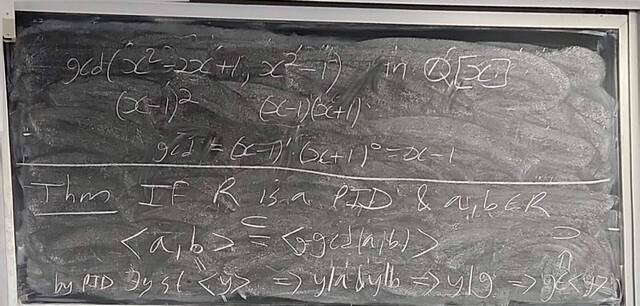 gcd(x²-2x+1, x²-1) in Q[x]
(x-1)² (x-1)(x+1)
gcd = (x-1)¹(x+1)⁰ = x-1
Thm If R is a PID & a,b∈R
⟨a,b⟩ = ⟨g=gcd(a,b)⟩
⊂ ⊃
by PID ∃y st ⟨y⟩ ⇒ y|a & y|b ⇒ y|g ⇒ g∈⟨y⟩